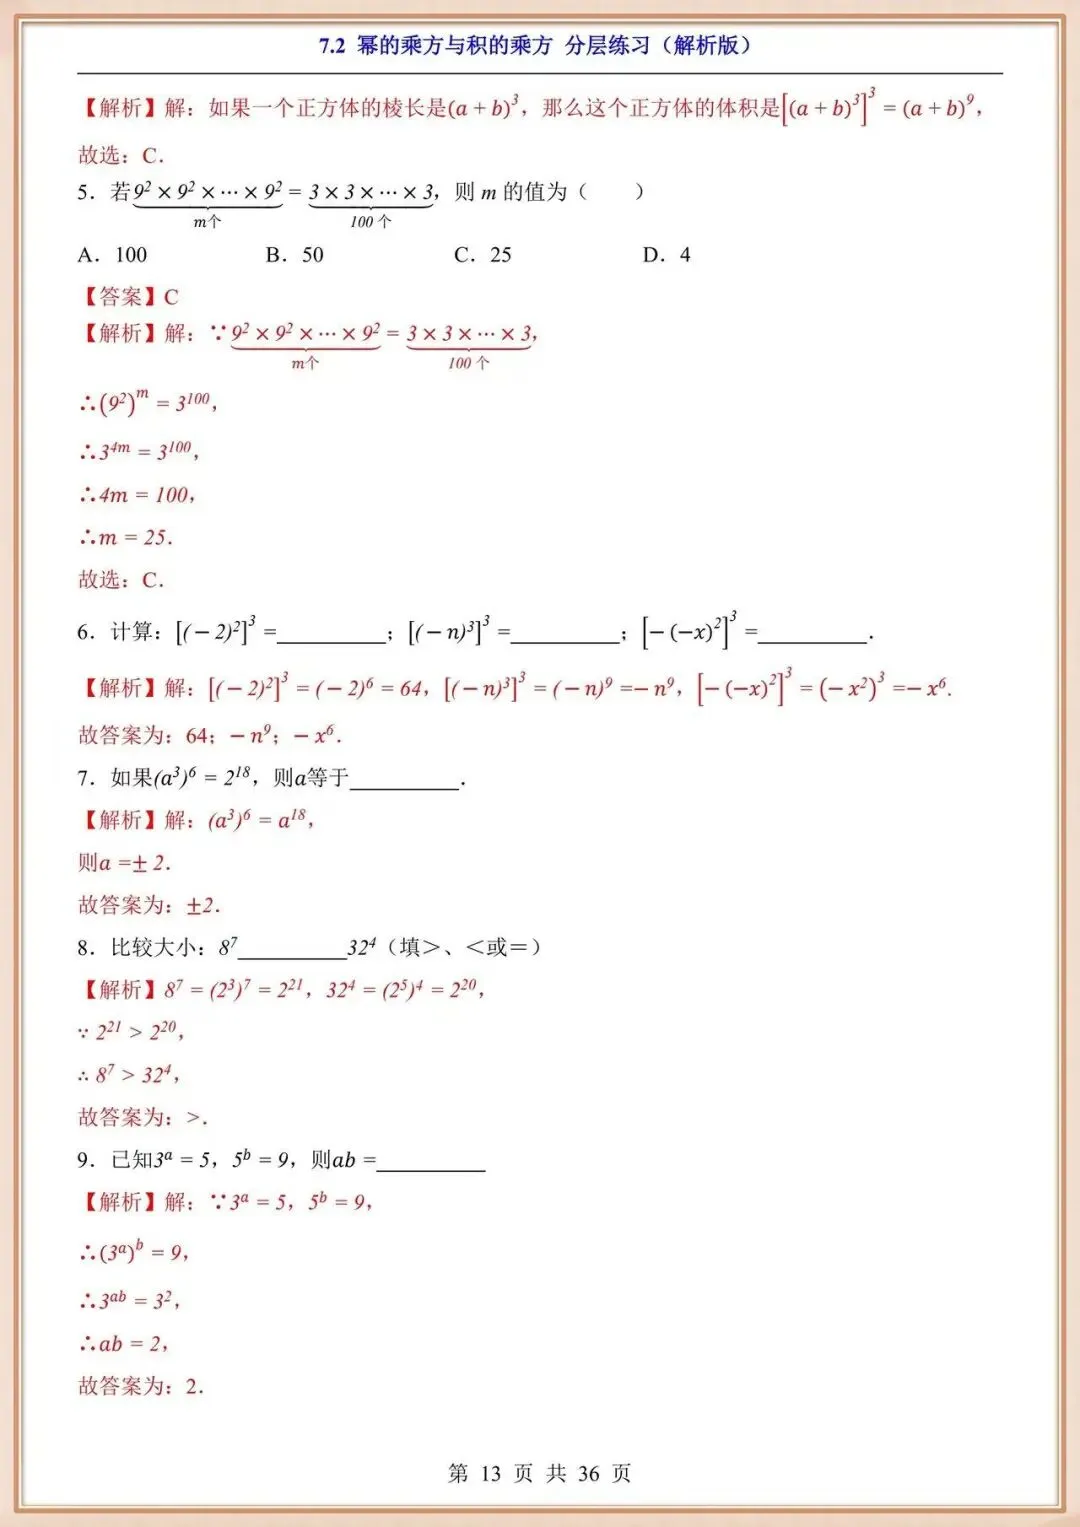 7.2 幂的乘方与积的乘方 分层练习（解析版）
【解析】解：如果一个正方体的棱长是(a + b)³，那么这个正方体的体积是[(a + b)³]³ = (a + b)⁹，
故选：C．
5．若9² × 9² × ⋯ × 9² = 3 × 3 × ⋯ × 3，则 m 的值为（　　）
m个 100 个
A．100 B．50 C．25 D．4
【答案】C
【解析】解：∵9² × 9² × ⋯ × 9² = 3 × 3 × ⋯ × 3，
m个 100 个
∴(9²)ᵐ = 3¹⁰⁰，
∴3⁴ᵐ = 3¹⁰⁰，
∴4m = 100，
∴m = 25．
故选：C．
6．计算：[(－2)²]³ =__________；[(－n)³]³ =__________；[－(−x)²]³ =__________．
【解析】解：[(－2)²]³ = (－2)⁶ = 64，[(－n)³]³ = (－n)⁹ =－n⁹，[－(−x)²]³ = (－x²)³ =－x⁶.
故答案为：64；－n⁹；－x⁶．
7．如果(a³)⁶ = 2¹⁸，则a等于__________．
【解析】解：(a³)⁶ = a¹⁸，
则a =± 2．
故答案为：±2．
8．比较大小：8⁷__________32⁴（填＞、＜或＝）
【解析】8⁷ = (2³)⁷ = 2²¹，32⁴ = (2⁵)⁴ = 2²⁰，
∵ 2²¹ > 2²⁰，
∴ 8⁷ > 32⁴，
故答案为：>．
9．已知3ᵃ = 5，5ᵇ = 9，则ab =__________
【解析】解：∵3ᵃ = 5，5ᵇ = 9，
∴(3ᵃ)ᵇ = 9，
∴3ᵃᵇ = 3²，
∴ab = 2，
故答案为：2．
第 13 页 共 36 页